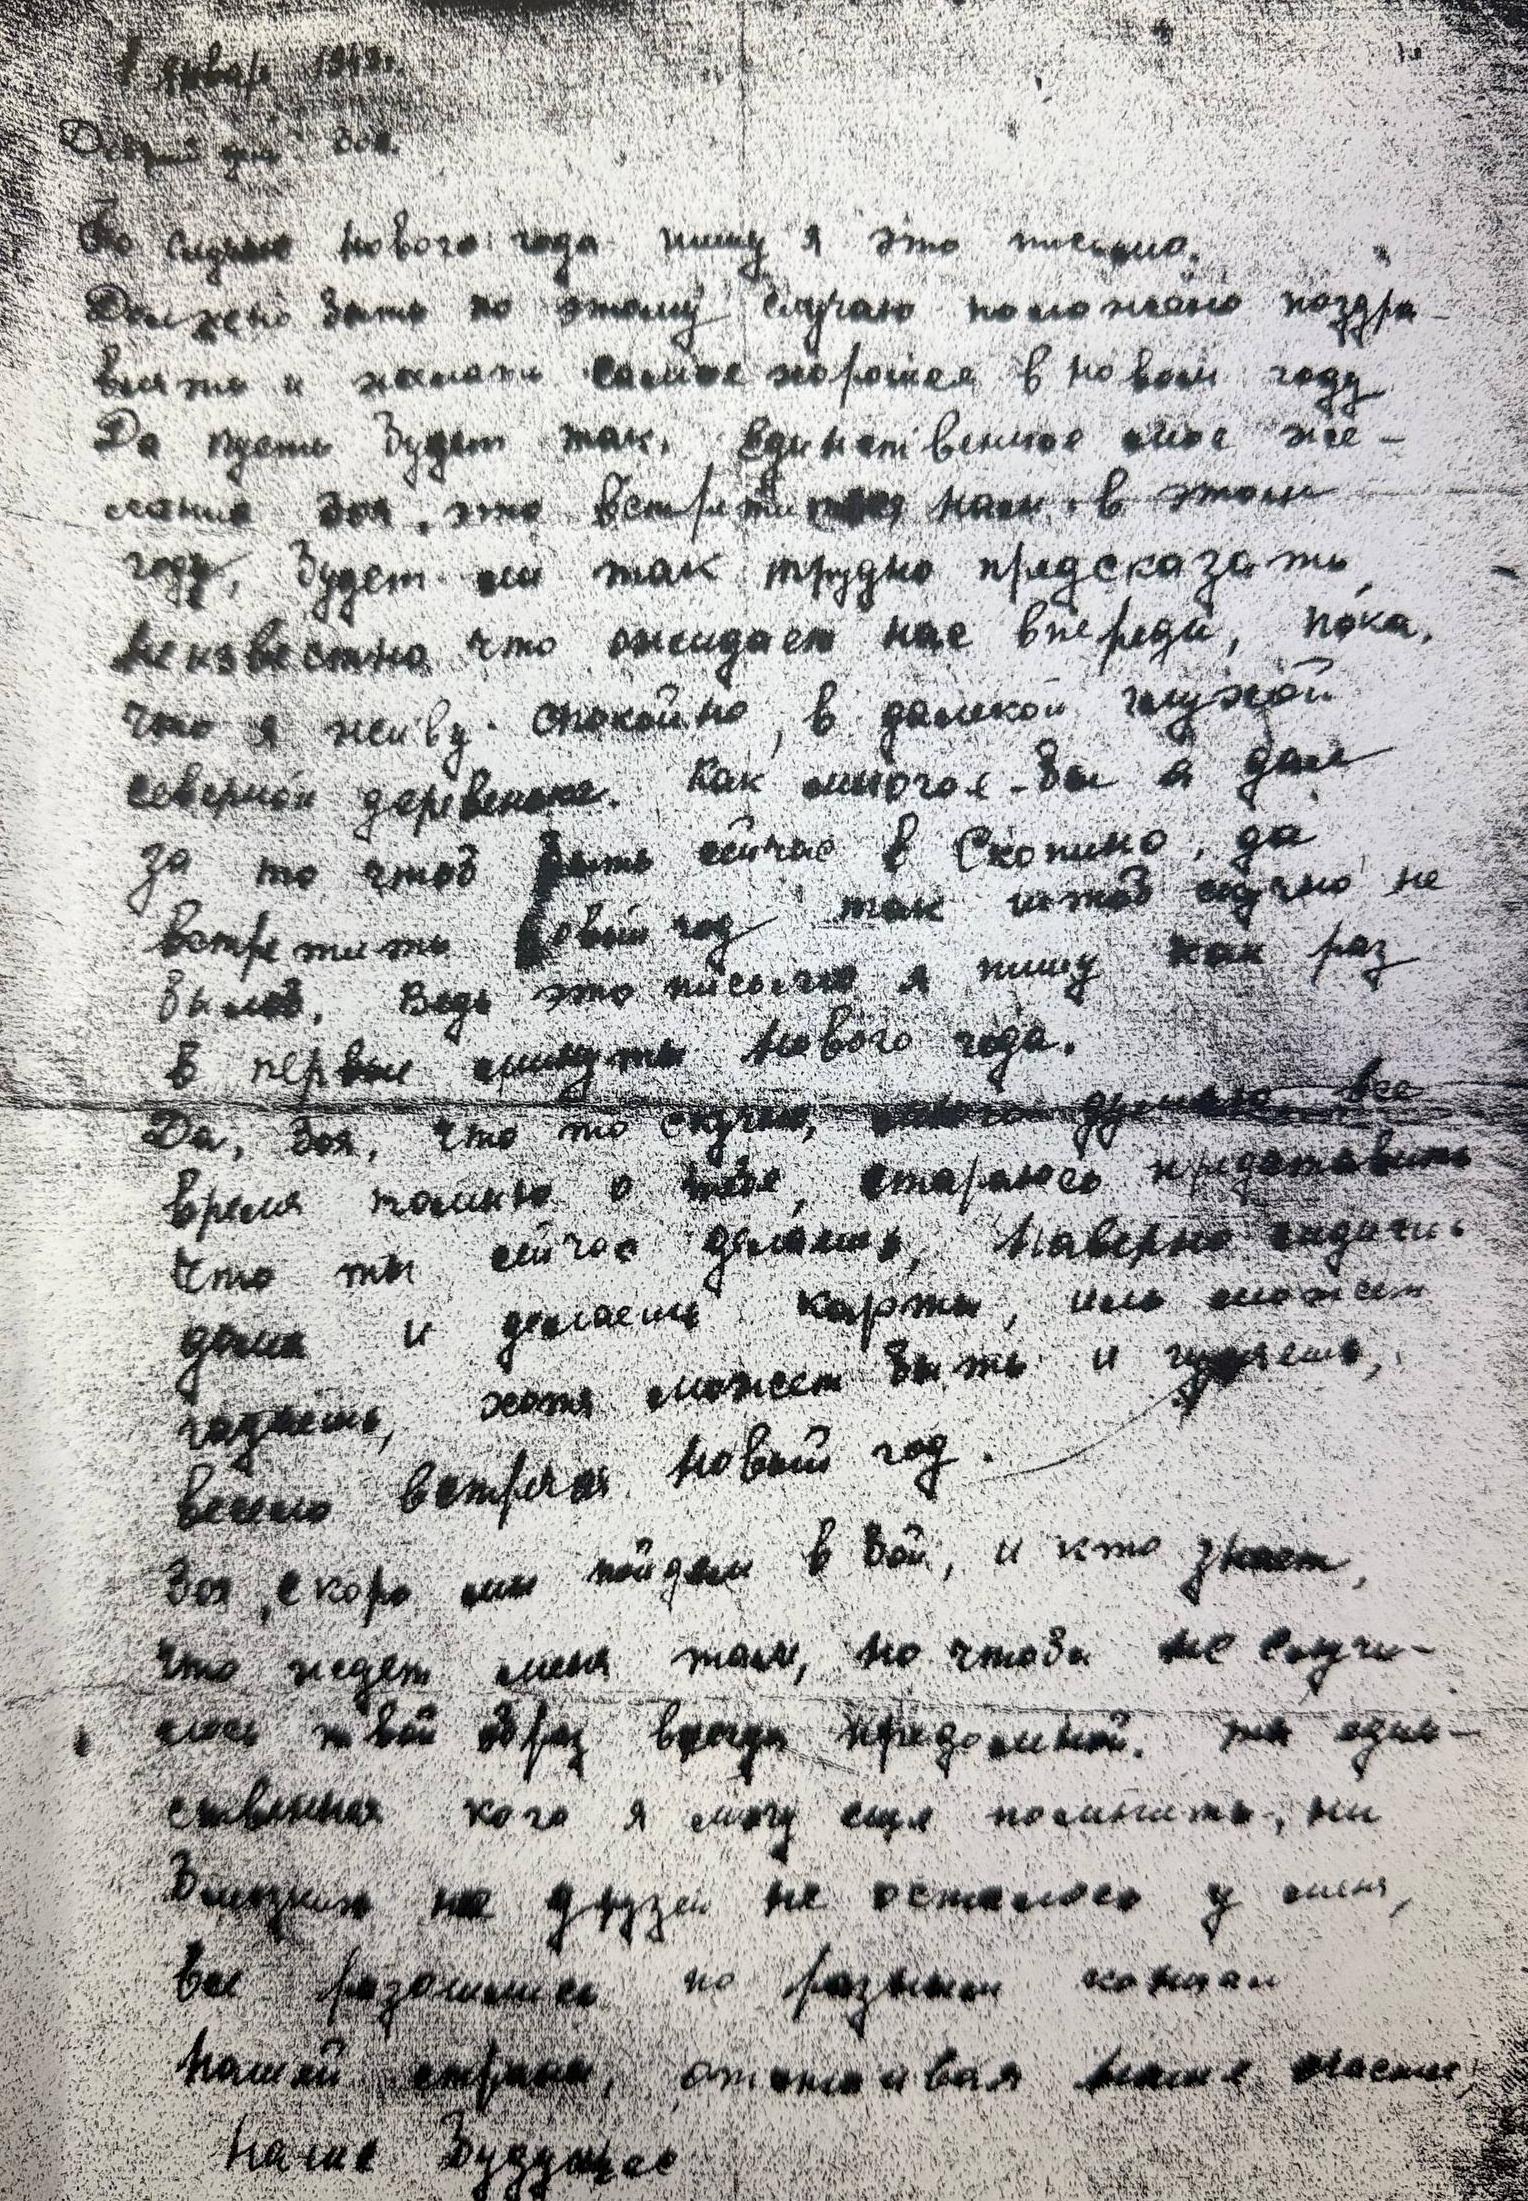 1 январ 1943г.
Добрый день Зоя.
Во случаю нового года пишу я это письмо.
Должно быть по этому случаю положено поздра-
вить и желать самое хорошее в новом году
Да пусть будет так. Единственное мое же-
лание Зоя, это встретится нам в этом
году, будет ли так трудно предсказать,
неизвестно что ожидает нас впереди, пока,
что я живу спокойно, в далекой глухой
северной деревеньке. Как многое бы я дал
за то чтоб быть сейчас в Скопино, да
встретить новый год так чтоб скучно не
было. Ведь это письмо я пишу как раз
в первые минуты нового года.
Да, Зоя, что то скучно, думаю все
время только о тебе, стараюсь представить
что ты сейчас делаешь, наверно сидишь
дома и делаешь карты, или может
гадаешь, хотя может быть и гуляешь,
весело встречая новый год.
Зоя, скоро мы пойдем в бой, и кто знает,
что ждет меня там, но чтобы не случи-
лось твой образ всегда предомной. ты един-
ственная кого я могу еще помнить, ни
близких не друзей не осталось у меня,
все разошлись по разным концам
нашей страны, отстаивая наше счастье,
наше будущее